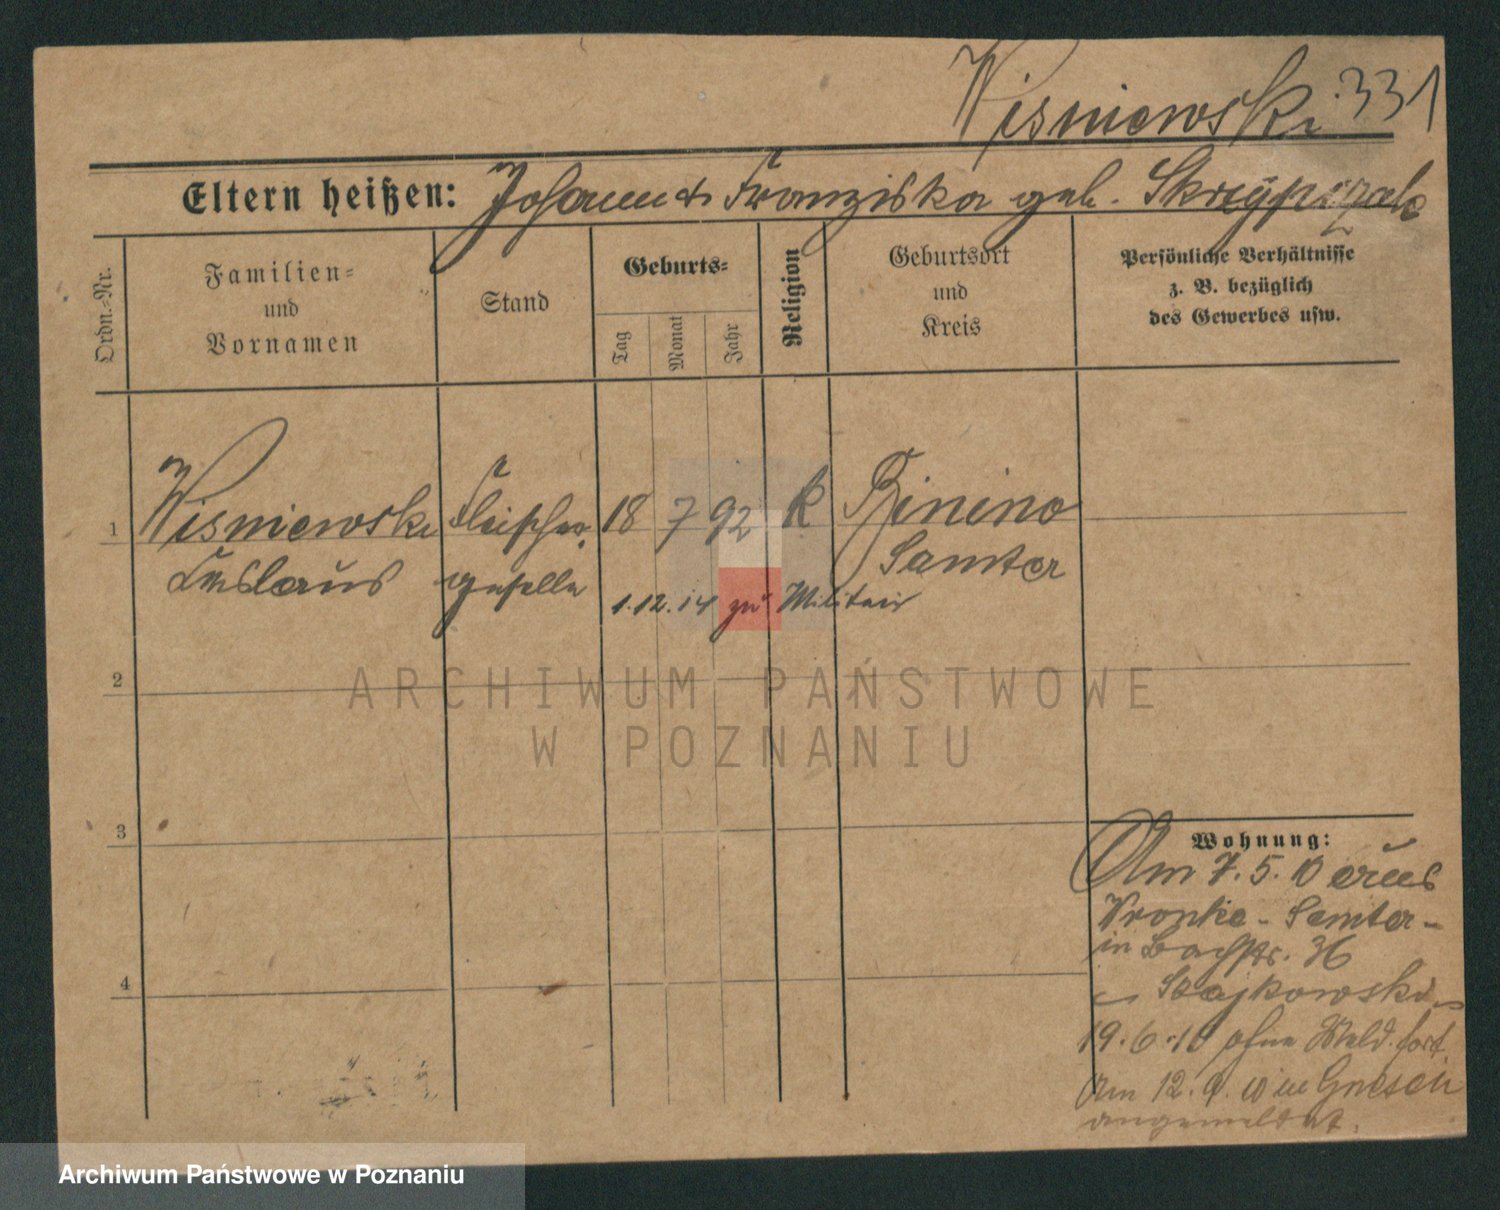 Wisniewski 331
Eltern heißen: Johann & Franziska geb. Skrzypczak
Ordn.-Nr.
Familien-
und
Vornamen
Stand
Geburts-
Tag
Monat
Jahr
Religion
Geburtsort
und
Kreis
Persönliche Verhältnisse
z. B. bezüglich
des Gewerbes usw.
1
Wisniewski Fleischer 18 7 92 k Binino
Ceslaus geselle Samter
1.12.14 zu Militair
2
3
4
Wohnung:
Am 7. 5. 10 aus
Wronke - Samter -
in Bachstr. 36
Stajkowski
19. 6. 10 ohne Meld. fort.
Am 12. 9. 10 in Gnesen
angemeldet.
ARCHIWUM PAŃSTWOWE
W POZNANIU
Archiwum Państwowe w Poznaniu